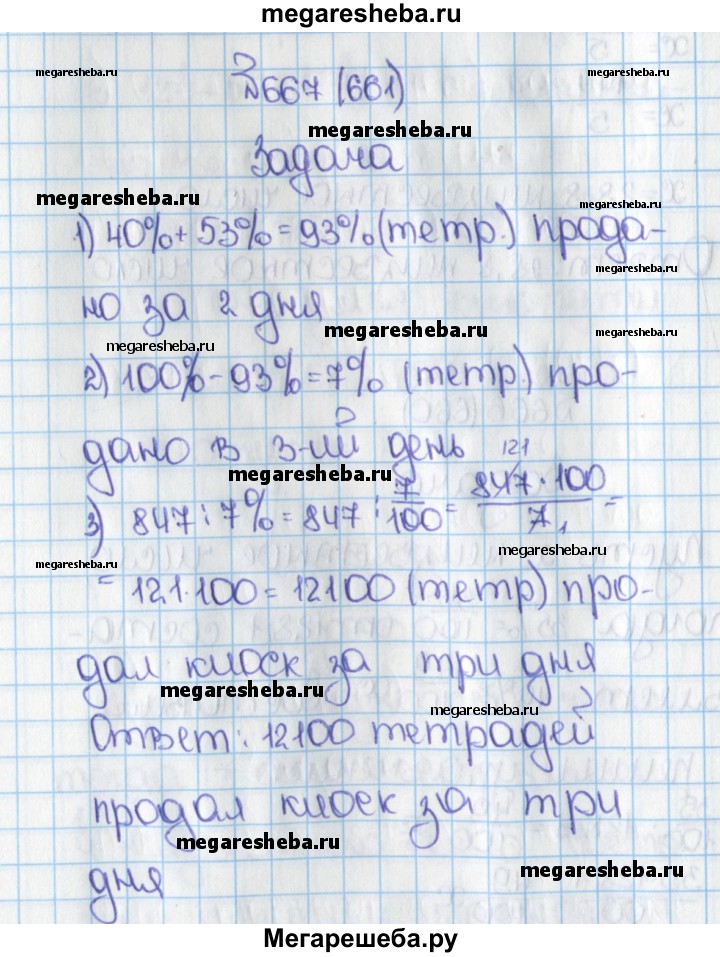 megaresheba.ru
№667 (661)
megaresheba.ru
megaresheba.ru
megaresheba.ru
Задача
megaresheba.ru
1) 40% + 53% = 93% (тетр.) прода-
megaresheba.ru
но за 2 дня
megaresheba.ru
megaresheba.ru
megaresheba.ru
2) 100% - 93% = 7% (тетр.) про-
дано в 3-ий день
megaresheba.ru
3) 847 : 7% = 847 : 7/100 = 847 121 · 100 / 7 1 =
megaresheba.ru
megaresheba.ru
= 121 · 100 = 12100 (тетр) про-
дал киоск за три дня
megaresheba.ru
megaresheba.ru
Ответ: 12100 тетрадей
продал киоск за три
megaresheba.ru
megaresheba.ru
дня
Мегарешеба.ру